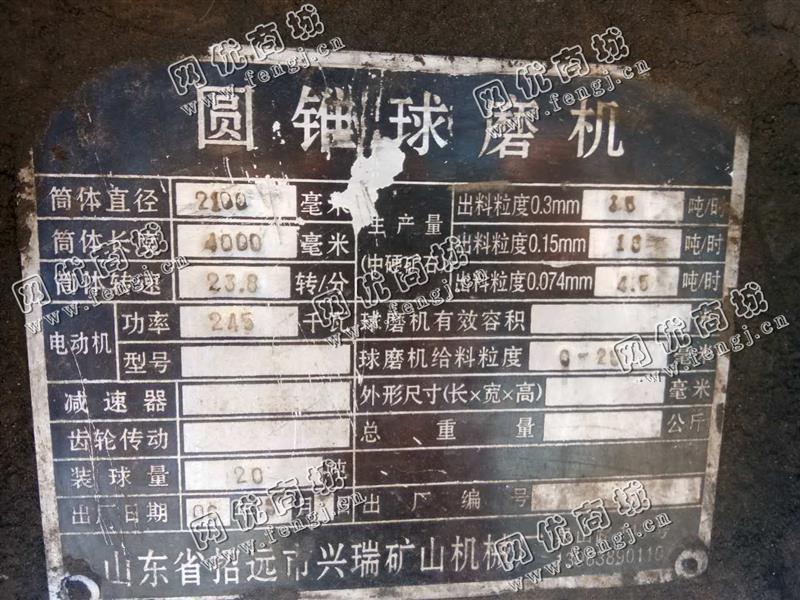 圆锥球磨机
筒体直径 2100 毫米 生产量 出料粒度0.3mm 吨/时
筒体长度 4000 毫米 (中硬矿石) 出料粒度0.15mm 吨/时
筒体转速 23.8 转/分 出料粒度0.074mm 4.5 吨/时
电动机 功率 245 千瓦 球磨机有效容积
型号 球磨机给料粒度 毫米
减速器 外形尺寸(长×宽×高) 毫米
齿轮传动 总重量 公斤
装球量 20 吨
出厂日期 出厂编号
山东省招远市兴瑞矿山机械
网优商城
www.fengj.cn
网优商城
www.fengj.cn
网优商城
www.fengj.cn
网优商城
www.fengj.cn
网优商城
www.fengj.cn
网优商城
www.fengj.cn